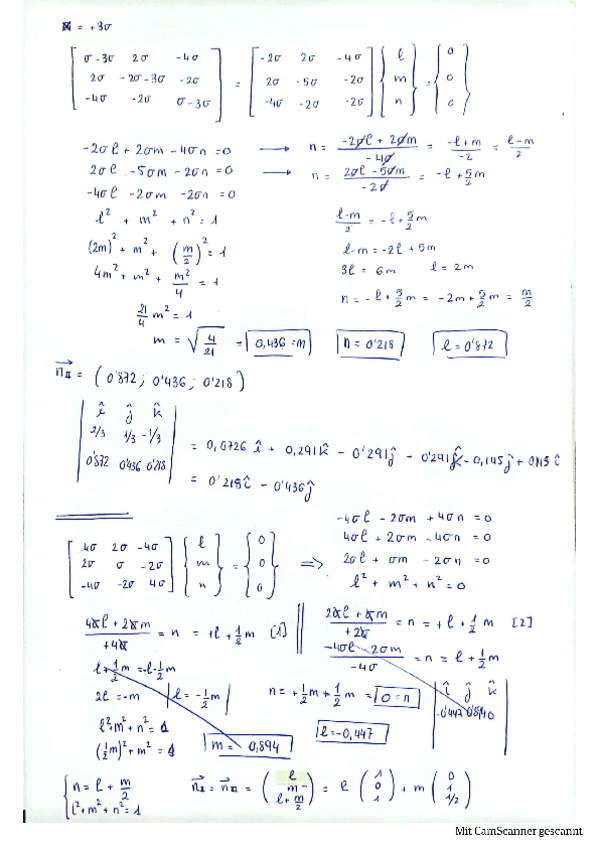 λ = +3σ
[σ-3σ 2σ -4σ; 2σ -2σ-3σ -2σ; -4σ -2σ σ-3σ] = [-2σ 2σ -4σ; 2σ -5σ -2σ; -4σ -2σ -2σ] {l; m; n} = {0; 0; 0}
-2σl + 2σm - 4σn = 0 ⟶ n = (-2σl + 2σm)/(-4σ) = (-l+m)/(-2) = (l-m)/2
2σl - 5σm - 2σn = 0 ⟶ n = (2σl - 5σm)/(-2σ) = -l + 5/2 m
-4σl - 2σm - 2σn = 0
l² + m² + n² = 1
(l-m)/2 = -l + 5/2 m
(2m)² + m² + (m/2)² = 1
l-m = -2l + 5m
4m² + m² + m²/4 = 1
3l = 6m l = 2m
21/4 m² = 1
n = -l + 5/2 m = -2m + 5/2 m = m/2
m = √(4/21) = 0,436 = m n = 0'218 l = 0'872
n_II = (0'872 ; 0'436 ; 0'218)
| î ĵ k̂; 2/3 1/3 -1/3; 0'872 0'436 0'218 |
= 0,0726 î + 0,291 k̂ - 0'291 ĵ - 0'291 k̂ - 0,145 ĵ + 0,145 î
= 0'218 î - 0'436 ĵ
[4σ 2σ -4σ; 2σ σ -2σ; -4σ -2σ 4σ] {l; m; n} = {0; 0; 0} ⇒
-4σl - 2σm + 4σn = 0
4σl + 2σm - 4σn = 0
2σl + σm - 2σn = 0
l² + m² + n² = 0
(4σl + 2σm)/(+4σ) = n = +l + 1/2 m [1]
(2σl + σm)/(+2σ) = n = +l + 1/2 m [2]
(-4σl - 2σm)/(-4σ) = n = l + 1/2 m
l + 1/2 m = -l - 1/2 m
2l = -m | l = -1/2 m |
n = +1/2 m + 1/2 m = 0 = n
| î ĵ k̂; -0'447 0'894 0
l² + m² + n² = 1
(1/2 m)² + m² = 1
m = 0,894 l = -0,447
{n = l + m/2
l² + m² + n² = 1
n_I = n_III = (l; m; l + m/2) = l (1; 0; 1) + m (0; 1; 1/2)
Mit CamScanner gescannt